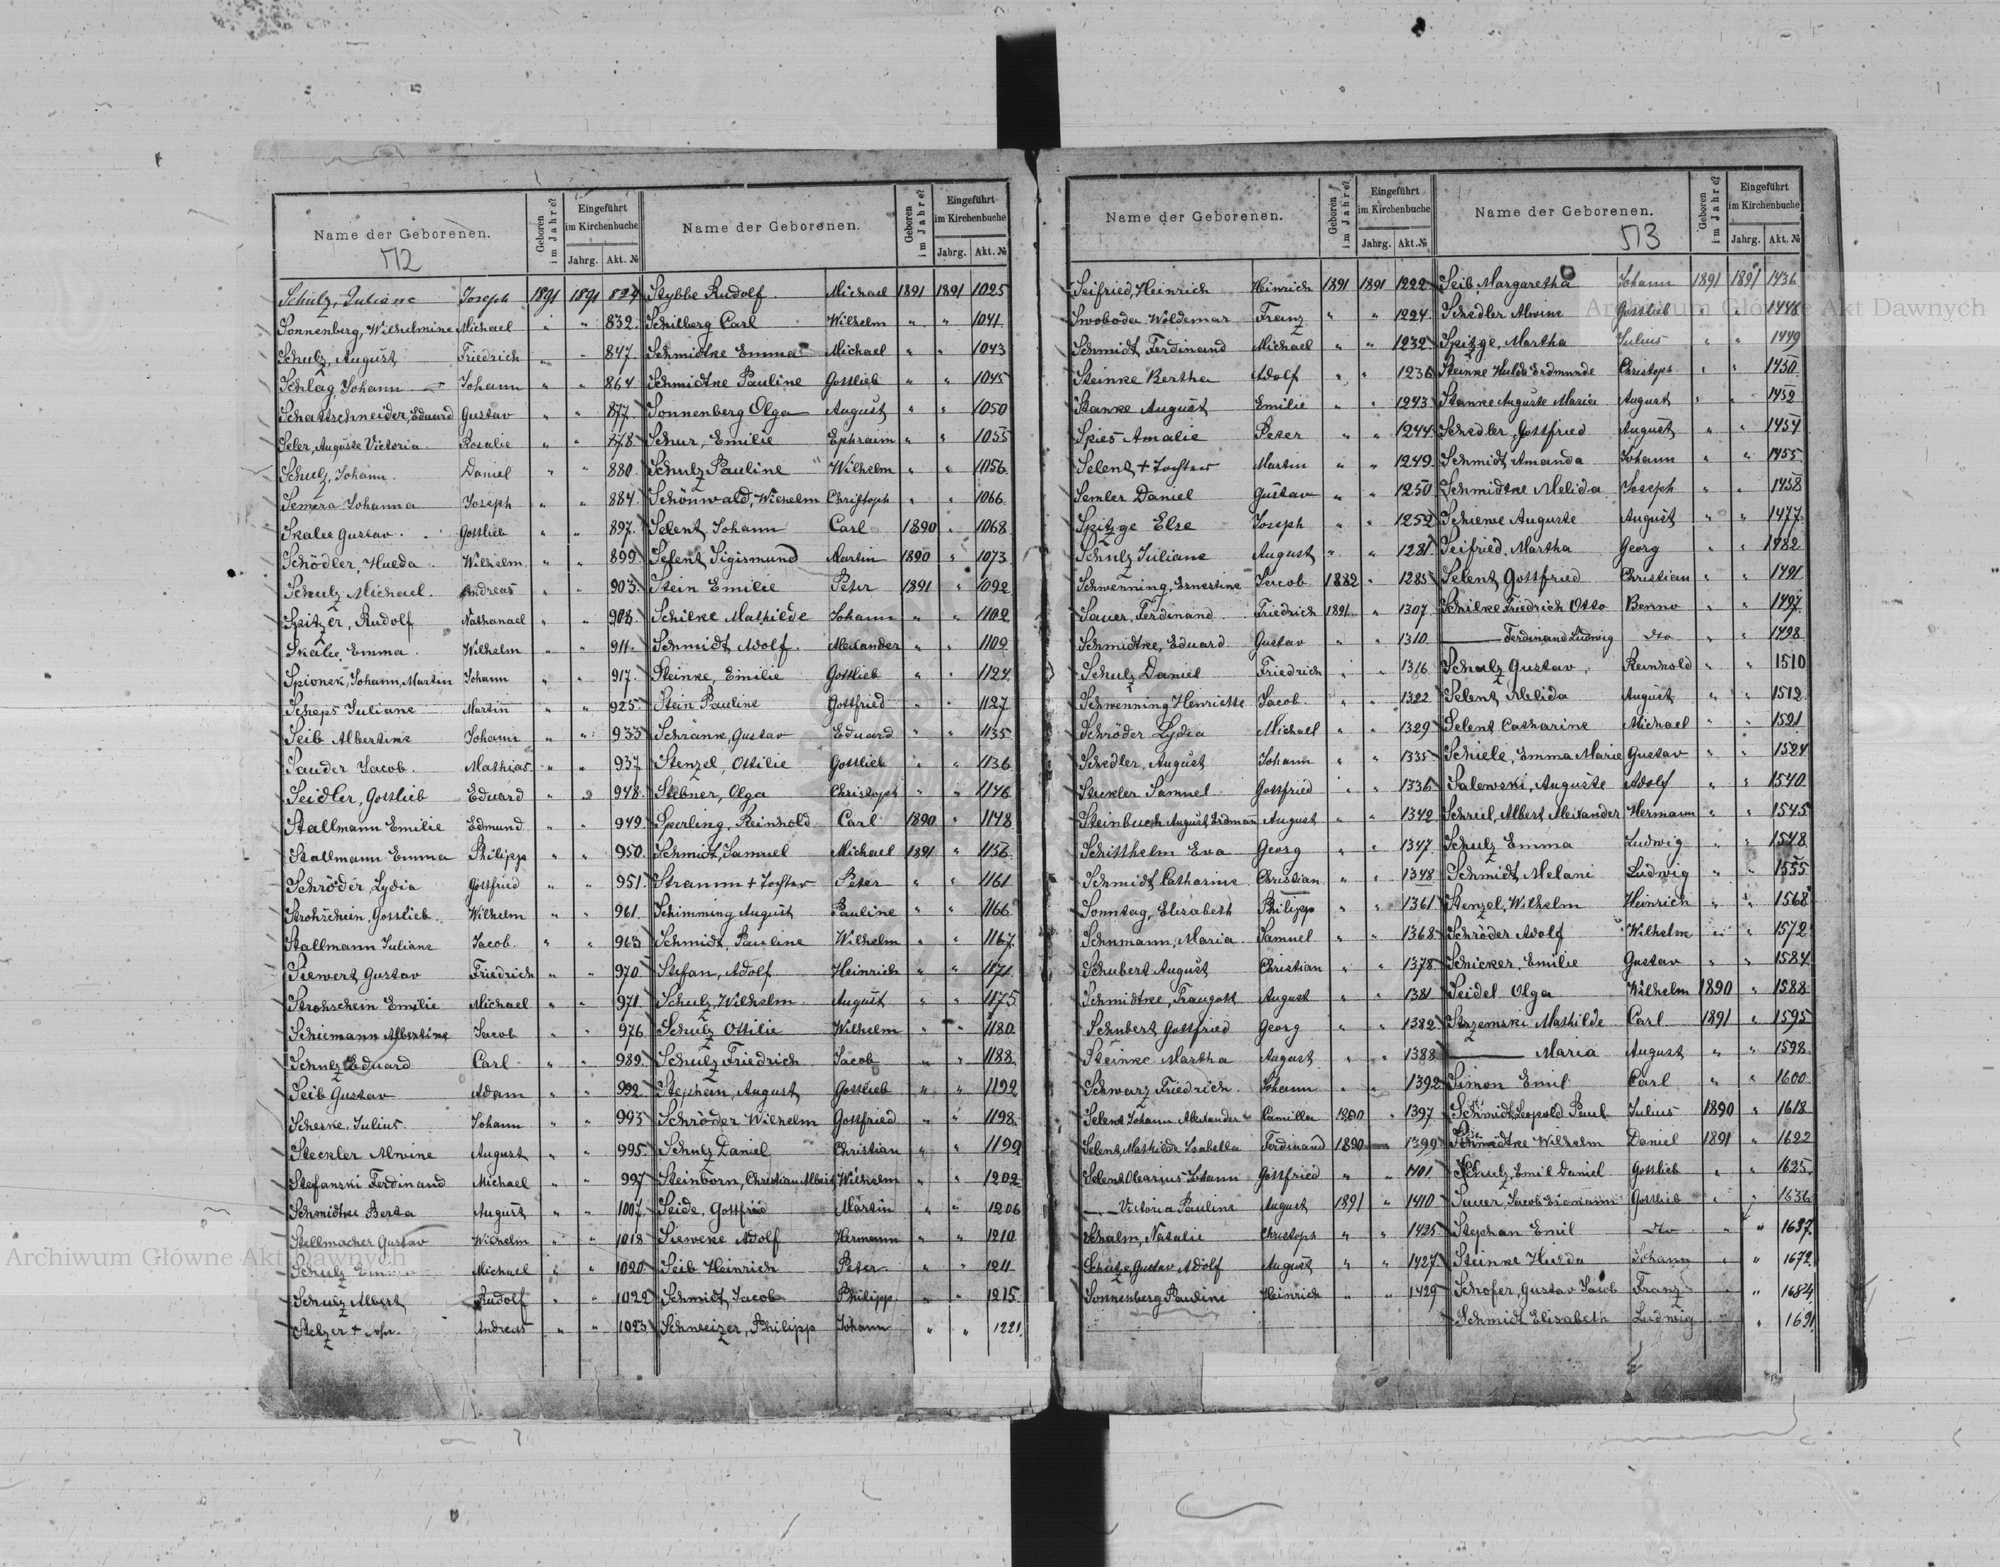 Name der Geborenen.
Geboren im Jahre?
Eingeführt im Kirchenbuche
Jahrg. Akt. №
Schulz, Juliane Joseph 1891 1891 824
Sonnenberg, Wilhelmine Michael " " 832
Schulz, August Friedrich " " 847.
Schlag, Johann Johann " " 864
Schattschneider, Eduard Gustav " " 877.
Seler, Auguste Victoria Rosalie " " 878.
Schulz, Johann. Daniel " " 880.
Semera Johanna Joseph " " 884.
Skalee Gustav. Gottlieb " " 897.
Schödler, Hulda. Wilhelm " " 899.
Schulz Michael. Andreas " " 903.
Spitzer, Rudolf Nathanael " "
Skalee, Emma. Wilhelm " " 911.
Spionek, Johann, Martin Johann " " 917.
Scheps Juliane Martin " " 925.
Seib Albertine Johann " " 933
Sauder Jacob. Mathias " " 937.
Seidler, Gottlieb Eduard " " 948.
Stallmann Emilie Edmund " " 949.
Stallmann Emma Philipp " " 950.
Schröder, Lydia Gottfried " " 951.
Strohschein, Gottlieb. Wilhelm " " 961.
Stallmann Juliane Jacob " " 963.
Siewert Gustav Friedrich " " 970.
Strohschein Emilie Michael " " 971.
Schiemann Albertine Jacob " " 976.
Schulz Eduard Carl " " 989.
Seib Gustav Adam " " 992.
Scheske, Julius. Johann " " 993
Steckler Alwine August " " 995.
Stefanski Ferdinand Michael " " 997.
Schmidtke Berta August " " 1007.
Stellmacher Gustav Wilhelm " " 1018.
Schulz Michael " " 1020.
Schulz Albert Rudolf " " 1022.
Stelzer + Andreas " " 1023.
Name der Geborenen.
Geboren im Jahre?
Eingeführt im Kirchenbuche
Jahrg. Akt. №
Stybbe Rudolf. Michael 1891 1891 1025
Schilberg Carl Wilhelm " " 1041.
Schmidtke Emma Michael " " 1043
Schmidtke Pauline Gottlieb " " 1045
Sonnenberg Olga August " " 1050
Schur, Emilie Ephraim " " 1055
Schulz Pauline Wilhelm " " 1056.
Schönwald, Wilhelm Christoph " " 1066
Selent, Johann Carl 1890 " 1068
Selent, Sigismund Martin 1890 " 1073
Stein Emilie Peter 1891 " 1092
Schilke Mathilde Johann " " 1102
Schmidt Adolf. Alexander " " 1109
Steinke, Emilie Gottlieb " " 1124.
Stein Pauline Gottfried " " 1127
Schranke, Gustav Eduard " " 1135
Stenzel, Ottilie Gottlieb " " 1136
Stebner, Olga Christoph " " 1146
Sperling, Reinhold Carl 1890 " 1148
Schmidt, Samuel Michael 1891 " 1156.
Stramm + Tochter Peter " " 1161
Schimming August Pauline " " 1166
Schmidt, Pauline Wilhelm " " 1167.
Stefan, Adolf Heinrich " " 1171
Schulz, Wilhelm August " " 1175
Schulz Ottilie Wilhelm " " 1180.
Schulz Friedrich Jacob " " 1188.
Stephan, August Gottlieb " " 1192
Schröder Wilhelm Gottfried " " 1198.
Schulz Daniel Christian " " 1199
Steinborn, Christian Albert Wilhelm " " 1202
Seide, Gottfried Martin " " 1206
Sieweke Adolf Hermann " " 1210
Seib Heinrich Peter " " 1211
Schmidt, Jacob Philipp " " 1215.
Schweizer, Philipp Johann " " 1221.
Name der Geborenen.
Geboren im Jahre?
Eingeführt im Kirchenbuche
Jahrg. Akt. №
Seifried, Heinrich Heinrich 1891 1891 1222
Swoboda Woldemar Franz " " 1224.
Schmidt Ferdinand Michael " " 1232
Steinke Bertha Adolf " " 1236
Stanke August Emilie " " 1243
Spies Amalie Peter " " 1244
Selent + Tochter Martin " " 1249.
Semler Daniel Gustav " " 1250
Spitzge Else Joseph " " 1252
Schulz Juliane August " " 1281
Schwenning, Ernestine Jacob 1882 " 1285
Sauer, Ferdinand. Friedrich 1891. " 1307
Schmidtke, Eduard Gustav " " 1310.
Schulz Daniel Friedrich " " 1316.
Schwenning Henriette Jacob. " " 1322
Schröder Lydia Michael " " 1329
Schedler, August Johann " " 1335
Steckler Samuel Gottfried " " 1336
Steinbuch August Erdmann August " " 1342
Schitthelm Eva Georg " " 1347.
Schmidt Catharine Christian " " 1348
Sonntag, Elisabeth Philipp " " 1361
Schumann, Maria Samuel " " 1368
Schubert August Christian " " 1378
Schmidtke, Traugott August " " 1381
Schubert Gottfried Georg " " 1382
Steinke Martha August " " 1388
Schwarz Friedrich Johann " " 1392
Selent Johann Alexander Camilla 1890 " 1397
Selent, Mathilde Isabella Ferdinand 1890 1399
Selent Olearius Johann Gottfried " " 1401
Victoria Pauline August 1891 " 1410
Schalm, Natalie Christoph " " 1425
Schütze Gustav Adolf August " " 1427
Sonnenberg Pauline Heinrich " " 1429
Name der Geborenen.
Geboren im Jahre?
Eingeführt im Kirchenbuche
Jahrg. Akt. №
Seib, Margaretha Johann 1891 1891 1436
Schedler Alwine Gottlieb " " 1448
Spitzge, Martha Julius " " 1449
Steinke Hulda Erdmunde Christoph " " 1450
Stanke Auguste Marie August " " 1452
Schedler, Gottfried August " " 1454
Schmidt Amanda Johann " " 1455
Schmidtke Melida Joseph " " 1458
Schiewe Auguste August " " 1477.
Seifried, Martha Georg " " 1482
Selent, Gottfried Christian " " 1491
Schilke Friedrich Otto Benno " " 1497.
Ferdinand Ludwig dto " " 1498.
Schulz Gustav, Reinhold " " 1510
Selent Melida August " " 1512.
Selent Catharine Michael " " 1521
Schiele, Emma Marie Gustav " " 1524
Salewski, Auguste Adolf " " 1540.
Schriel, Albert Alexander Hermann " " 1545
Schulz Emma Ludwig " " 1548
Schmidt Melani Ludwig " " 1555
Stenzel, Wilhelm Heinrich " " 1568
Schröder Adolf Wilhelm " " 1572
Schicker, Emilie Gustav " " 1584.
Seidel Olga Wilhelm 1890 " 1588
Strzemski Mathilde Carl 1891 " 1595
Maria August " " 1598
Simon Emil Carl " " 1600
Schmidt, Leopold Paul Julius 1890 " 1618
Schmidtke Wilhelm Daniel 1891 " 1622
Schulz, Emil Daniel Gottlieb " " 1625.
Sauer, Jacob Erdmann Gottlieb " " 1636
Stephan Emil dto " " 1637.
Steinke Hulda Johann " " 1672
Schofer, Gustav Jacob Franz " " 1684
Schmidt Elisabeth Ludwig " " 1691
Archiwum Główne Akt Dawnych
Archiwum Główne Akt Dawnych